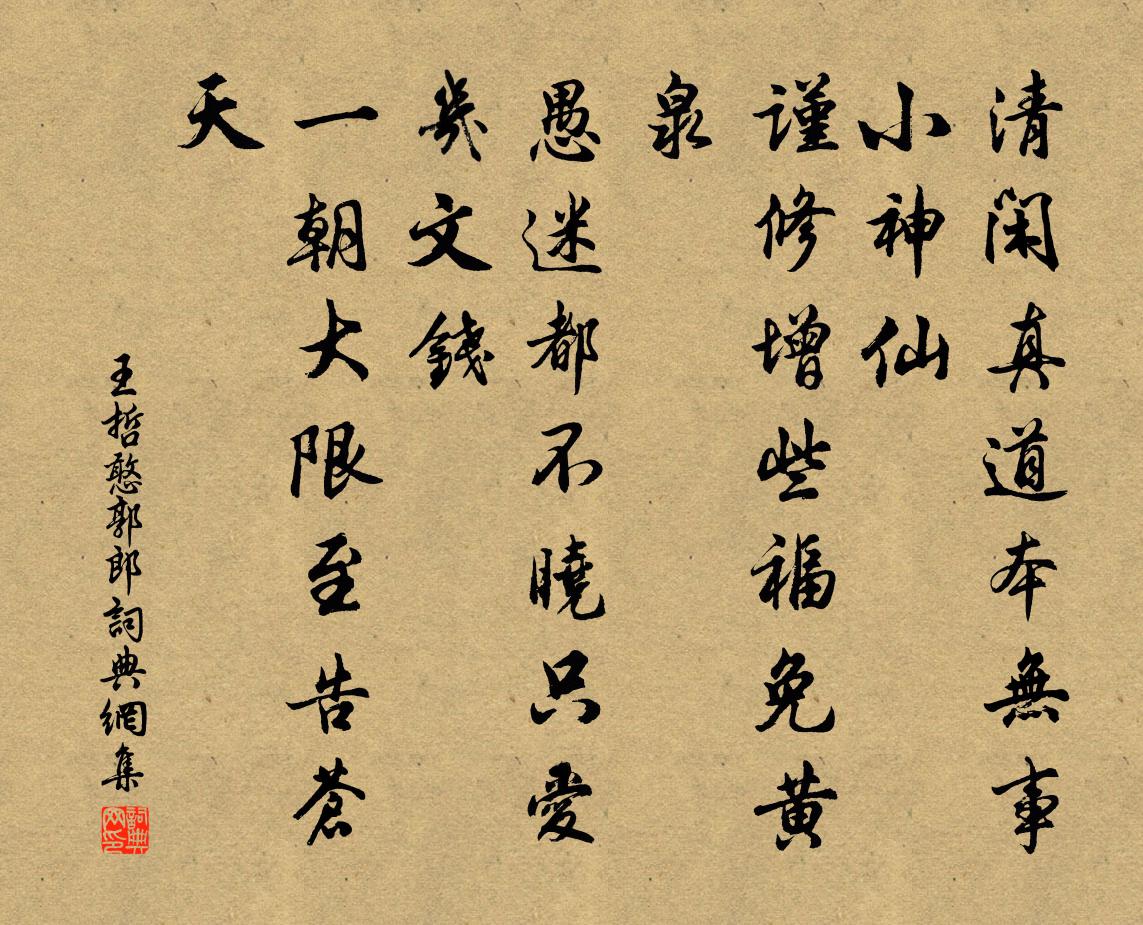 清閑真道本無事
小神仙
謹修增些福免黃
泉
愚迷都不曉只愛
幾文錢
一朝大限至告蒼
天
王哲憨郭郎詞典網集
詞典网印